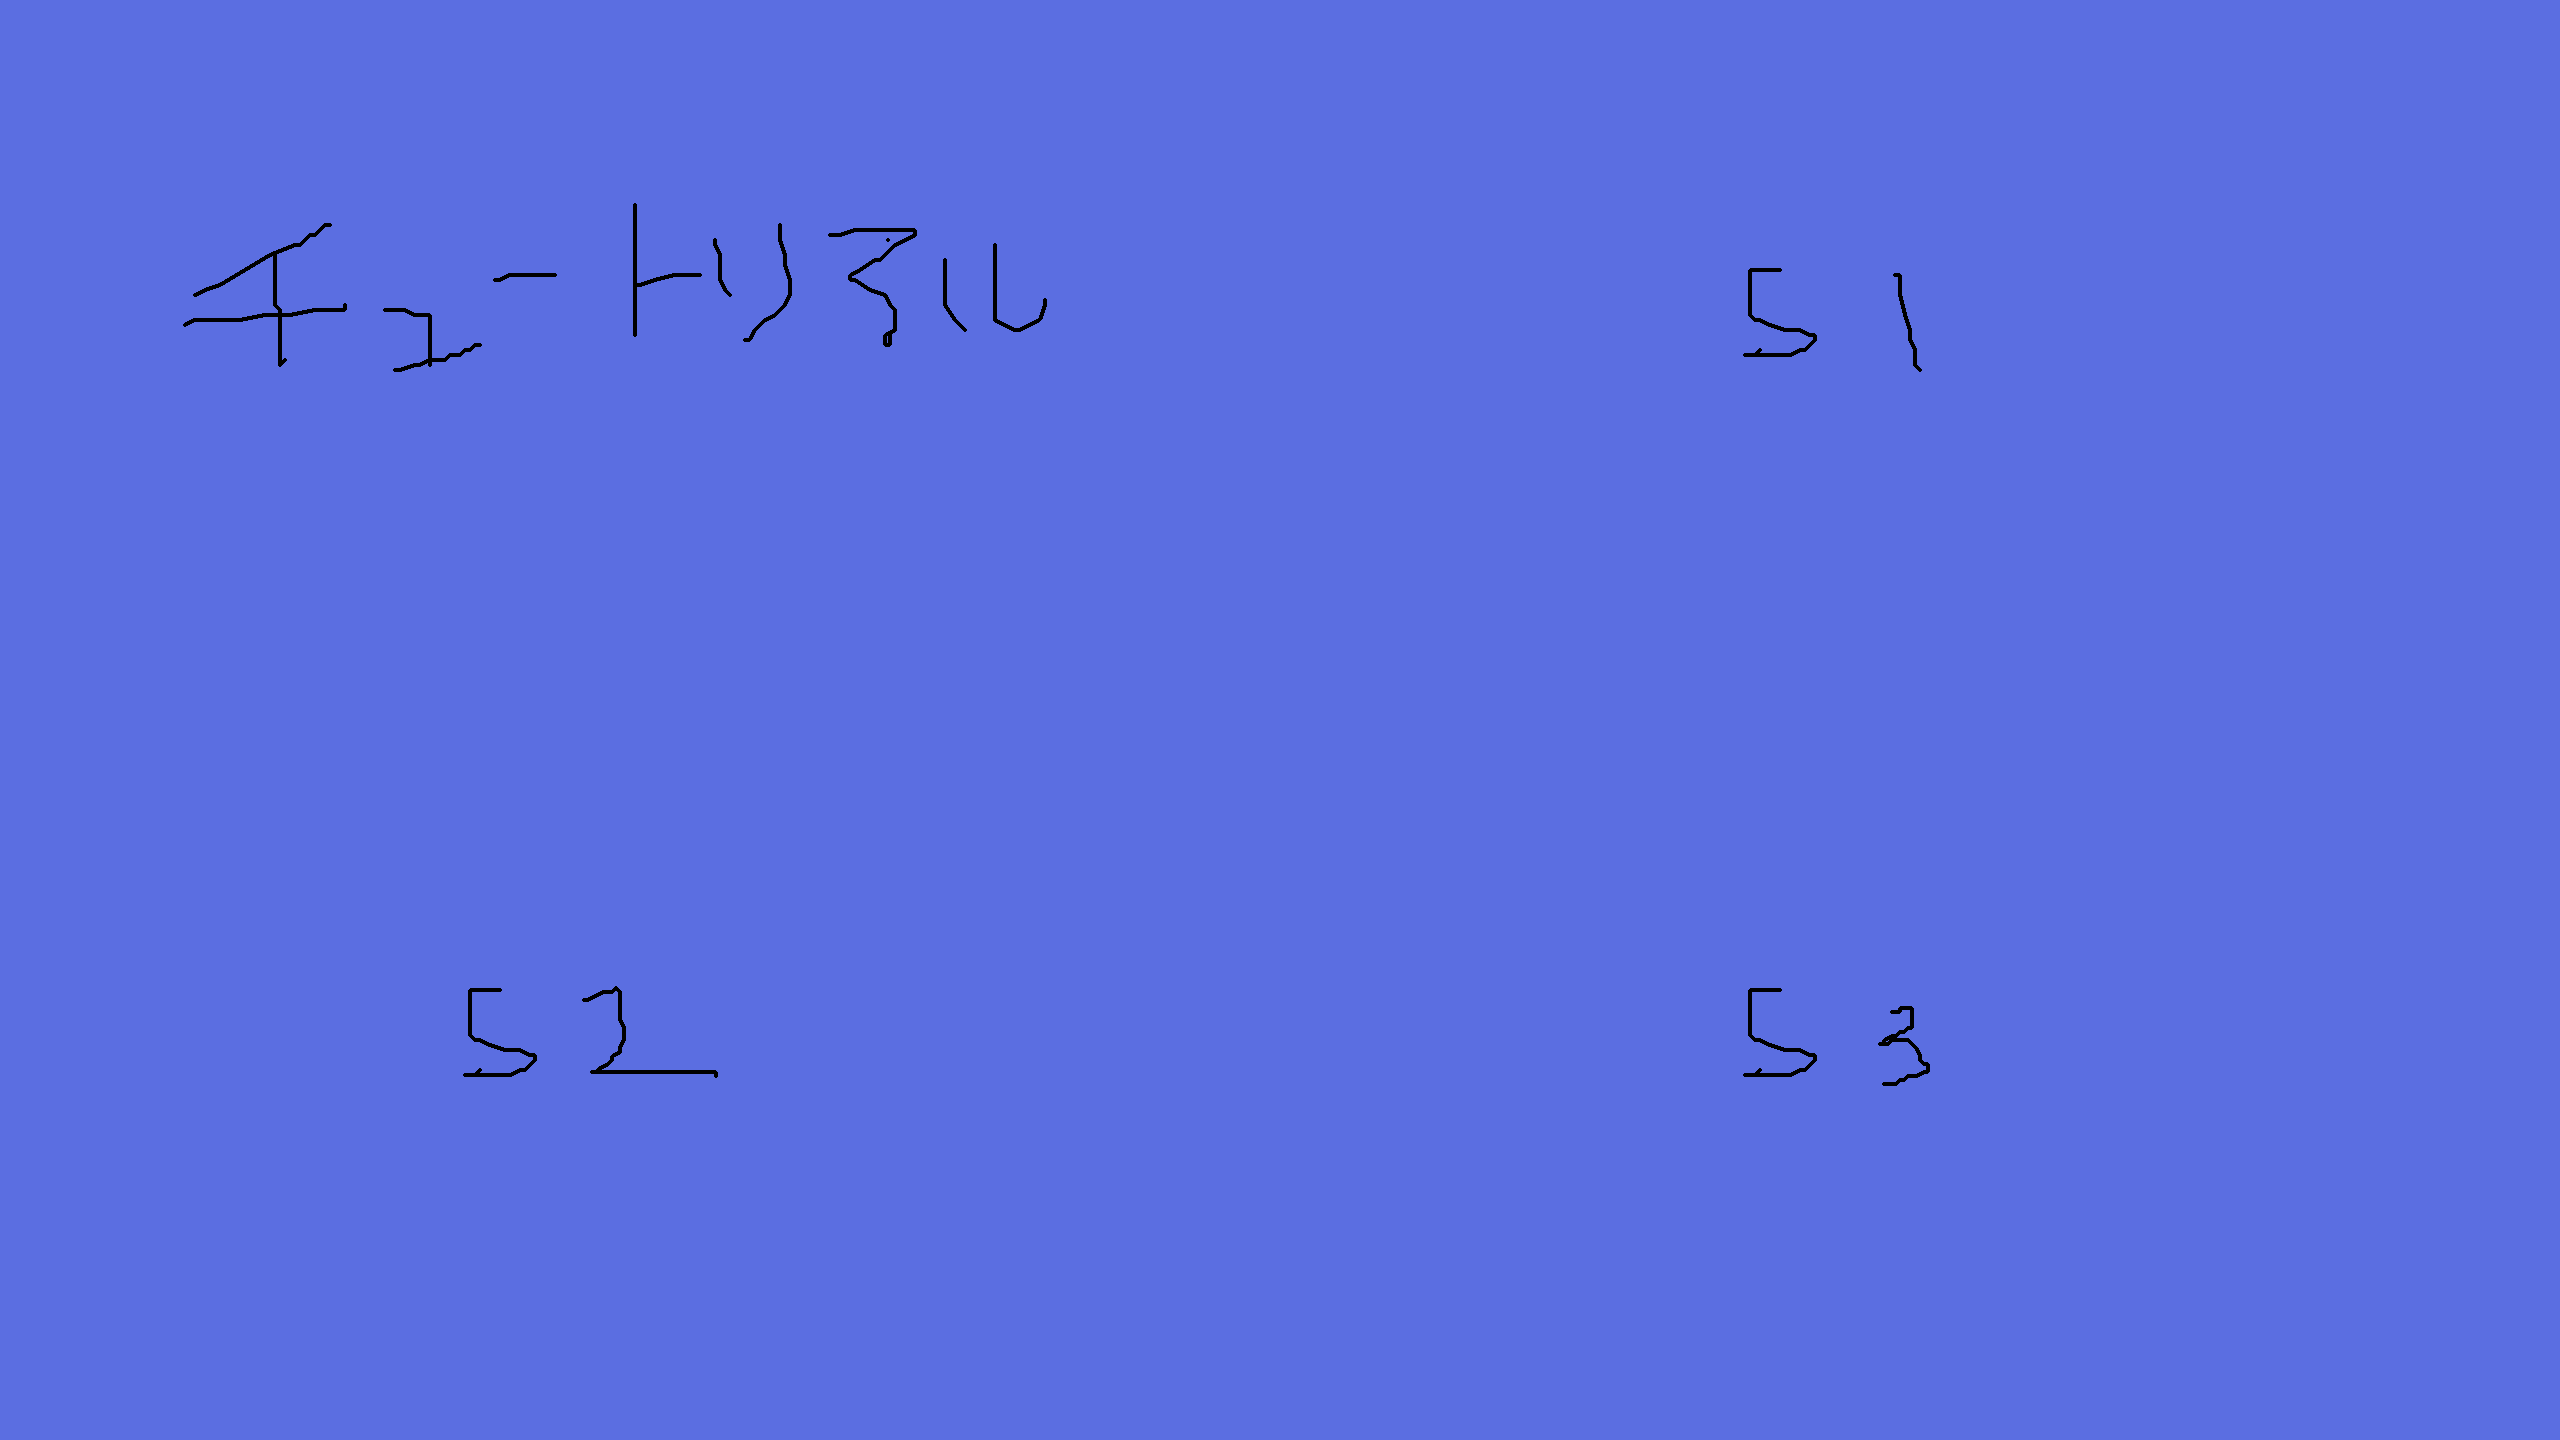 チュートリアル
51
52
53